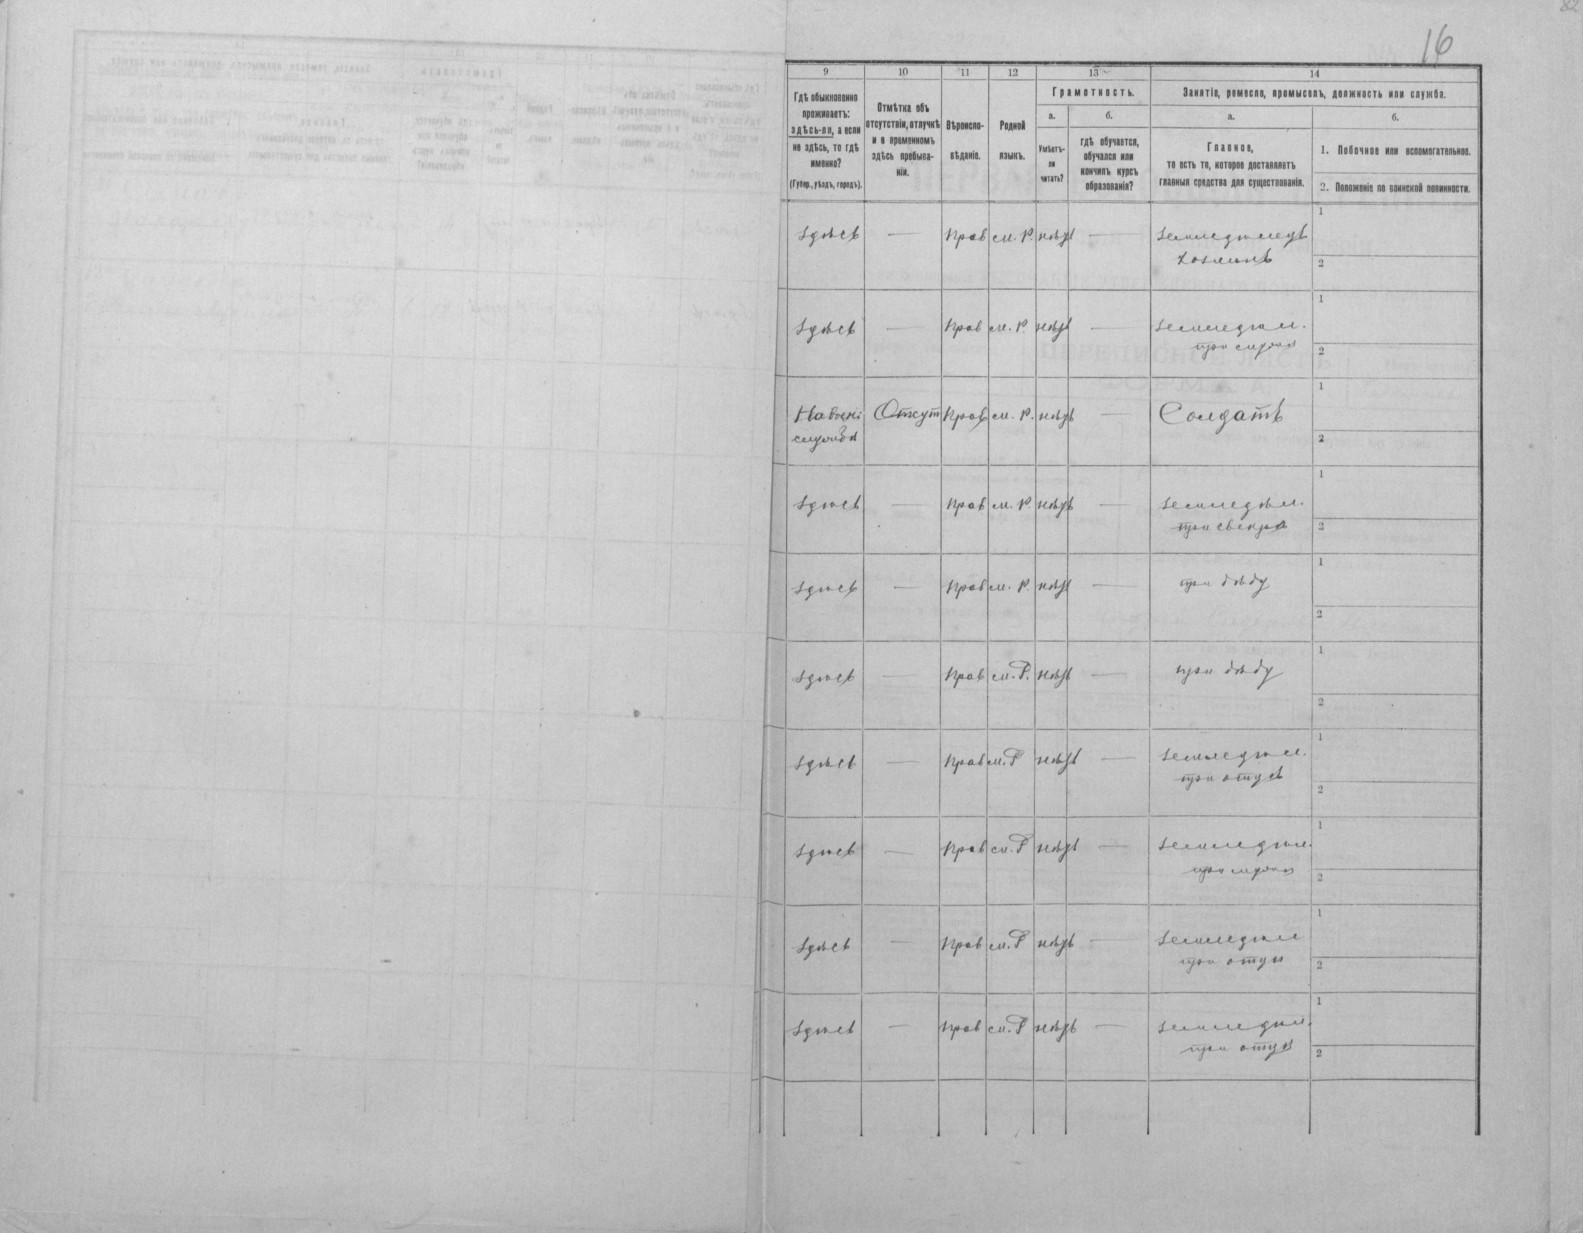 16
9 10 11 12 13 14
Гдѣ обыкновенно
проживаетъ:
здѣсь-ли, а если
не здѣсь, то гдѣ
именно?
(Губер., уѣздъ, городъ).
Отмѣтка объ
отсутствіи, отлучкѣ
и о временномъ
здѣсь пребыва-
ніи.
Вѣроиспо-
вѣданіе.
Родной
языкъ.
Грамотность.
а.
Умѣетъ-
ли
читать?
б.
гдѣ обучается,
обучался или
кончилъ курсъ
образованія?
Занятіе, ремесло, промыселъ, должность или служба.
а.
Главное,
то есть то, которое доставляетъ
главныя средства для существованія.
б.
1. Побочное или вспомогательное.
2. Положеніе по воинской повинности.
здѣсь — Прав м. Р. нѣтъ — земледѣлецъ 1
хозяинъ 2
здѣсь — Прав м. Р. нѣтъ — земледѣл. 1
при мужѣ 2
На воен. Отсут Прав м. Р. нѣтъ — Солдатъ 1
службѣ 2
здѣсь — Прав м. Р. нѣтъ — земледѣл. 1
при свекрѣ 2
здѣсь — Прав м. Р. нѣтъ — при дѣду 1
2
здѣсь — Прав м. Р. нѣтъ — при дѣду 1
2
здѣсь — Прав м. Р нѣтъ — земледѣл. 1
при отцѣ 2
здѣсь — Прав м. Р нѣтъ — земледѣл. 1
при мужѣ 2
здѣсь — Прав м. Р нѣтъ — земледѣл 1
при отцѣ 2
здѣсь — Прав м. Р нѣтъ — земледѣл. 1
при отцѣ 2